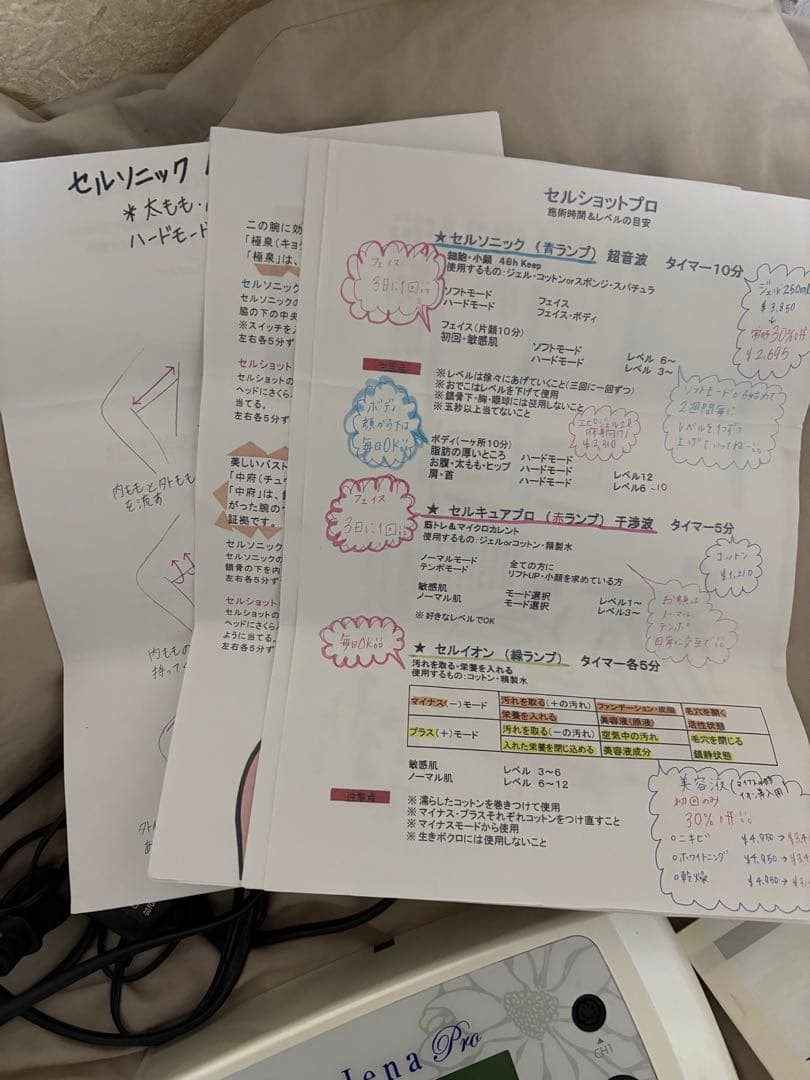 セルソニック
*太もも・
ハードモード
内ももと外ももを流す
内ももの
持って
外ﾓﾓ
二の腕に効
「極泉(キョク
「極泉」は、
セルソニック
セルソニックの
脇の下の中央
※スイッチを入
左右各5分ず
セルショット
セルショットの
ヘッドにさくら
当てる。
左右各5分ず
美しいバスト
「中府(チュウ
「中府」は、
がった腕の
証拠です。
セルソニック
セルソニックの
鎖骨の下を内
左右各5分ず
セルショット
セルショットの
ヘッドにさくら
ように当てる。
左右各5分ず
セルショットプロ
施術時間&レベルの目安
★セルソニック (青ランプ) 超音波 タイマー10分
細胞・小顔 48h Keep
使用するもの:ジェル・コットンorスポンジ・スパチュラ
フェイス
3日に1回
ジェル250ml
¥3,850
↓
30%off
¥2,695
ソフトモード フェイス
ハードモード フェイス・ボディ
フェイス(片顔10分)
初回・敏感肌 ソフトモード レベル 6~
ハードモード レベル 3~
注意点
※レベルは徐々にあげていくこと(三回に一回ずつ)
※おでこはレベルを下げて使用
※鎖骨下・胸・眼球には使用しないこと
※五秒以上当てないこと
ボディ
顔から下は
毎日OK!!
ジェル2ℓ
¥2,310
ソフトモードから始めて
2週間毎に
レベルを1つずつ
上げていってね
ボディ(一ヶ所10分)
脂肪の厚いところ ハードモード
お腹・太もも・ヒップ ハードモード レベル12
肩・首 ハードモード レベル6~10
フェイス
3日に1回
★セルキュアプロ (赤ランプ) 干渉波 タイマー5分
筋トレ&マイクロカレント
使用するもの:ジェルorコットン・精製水
コットン
¥1,210
ノーマルモード 全ての方に
テンポモード リフトUP・小顔を求めている方
敏感肌 モード選択 レベル1~
ノーマル肌 モード選択 レベル3~
※好きなレベルでOK
お顔は
ノーマル
テンポ
毎日OK
★セルイオン (緑ランプ) タイマー各5分
汚れを取る・栄養を入れる
使用するもの:コットン・精製水
マイナス(-)モード 汚れを取る(+の汚れ) ファンデーション・皮脂 毛穴を開く
栄養を入れる 美容液(原液) 活性状態
プラス(+)モード 汚れを取る(-の汚れ) 空気中の汚れ 毛穴を閉じる
入れた栄養を閉じ込める 美容液成分 鎮静状態
敏感肌 レベル 3~6
ノーマル肌 レベル 6~12
注意点
※濡らしたコットンを巻きつけて使用
※マイナス・プラスそれぞれコットンをつけ直すこと
※マイナスモードから使用
※生きボクロには使用しないこと
美容液
初回のみ
30%off
○ニキビ ¥4,950→
○ホワイトニング ¥4,950→
○乾燥 ¥4,950→
Jena Pro
CH1